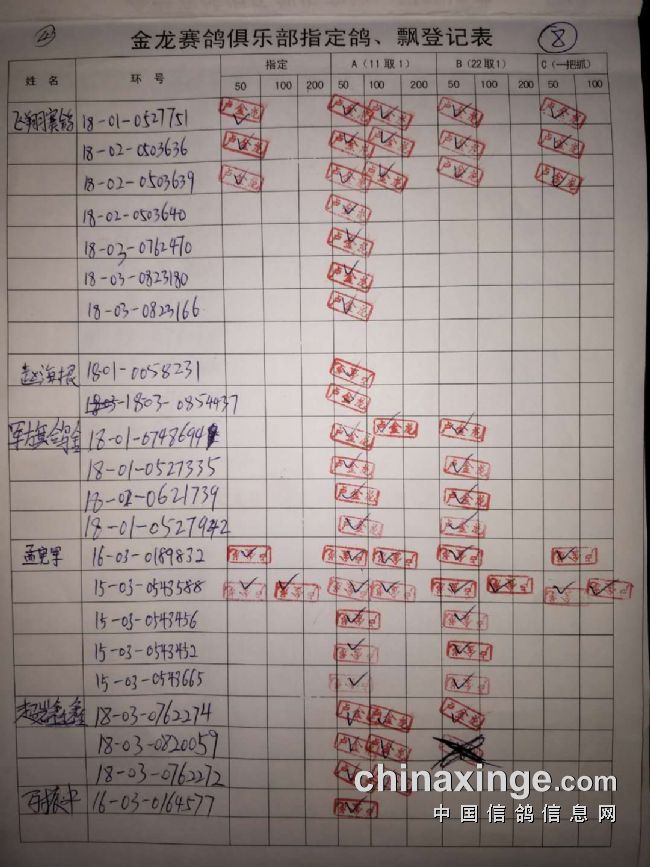 金龙赛鸽俱乐部指定鸽、飘登记表
8
姓 名 环 号 指定 A (11取1) B (22取1) C (一把抓)
50 100 200 50 100 200 50 100 200 50 100
飞翔赛鸽 18-01-0527751
18-02-0503636
18-02-0503639
18-02-0503640
18-03-0762470
18-03-0823180
18-03-0823166
赵海根 1801-0058231
1803-0854437
军旗鸽舍 18-01-0748694
18-01-0527335
18-02-0621739
18-01-0527942
孟宪军 16-03-0189832
15-03-0543588
15-03-0543456
15-03-0543452
15-03-0543665
18-03-0762274
18-03-0820059
18-03-0762272
16-03-0164577
chinaxinge.com
中国信鸽信息网